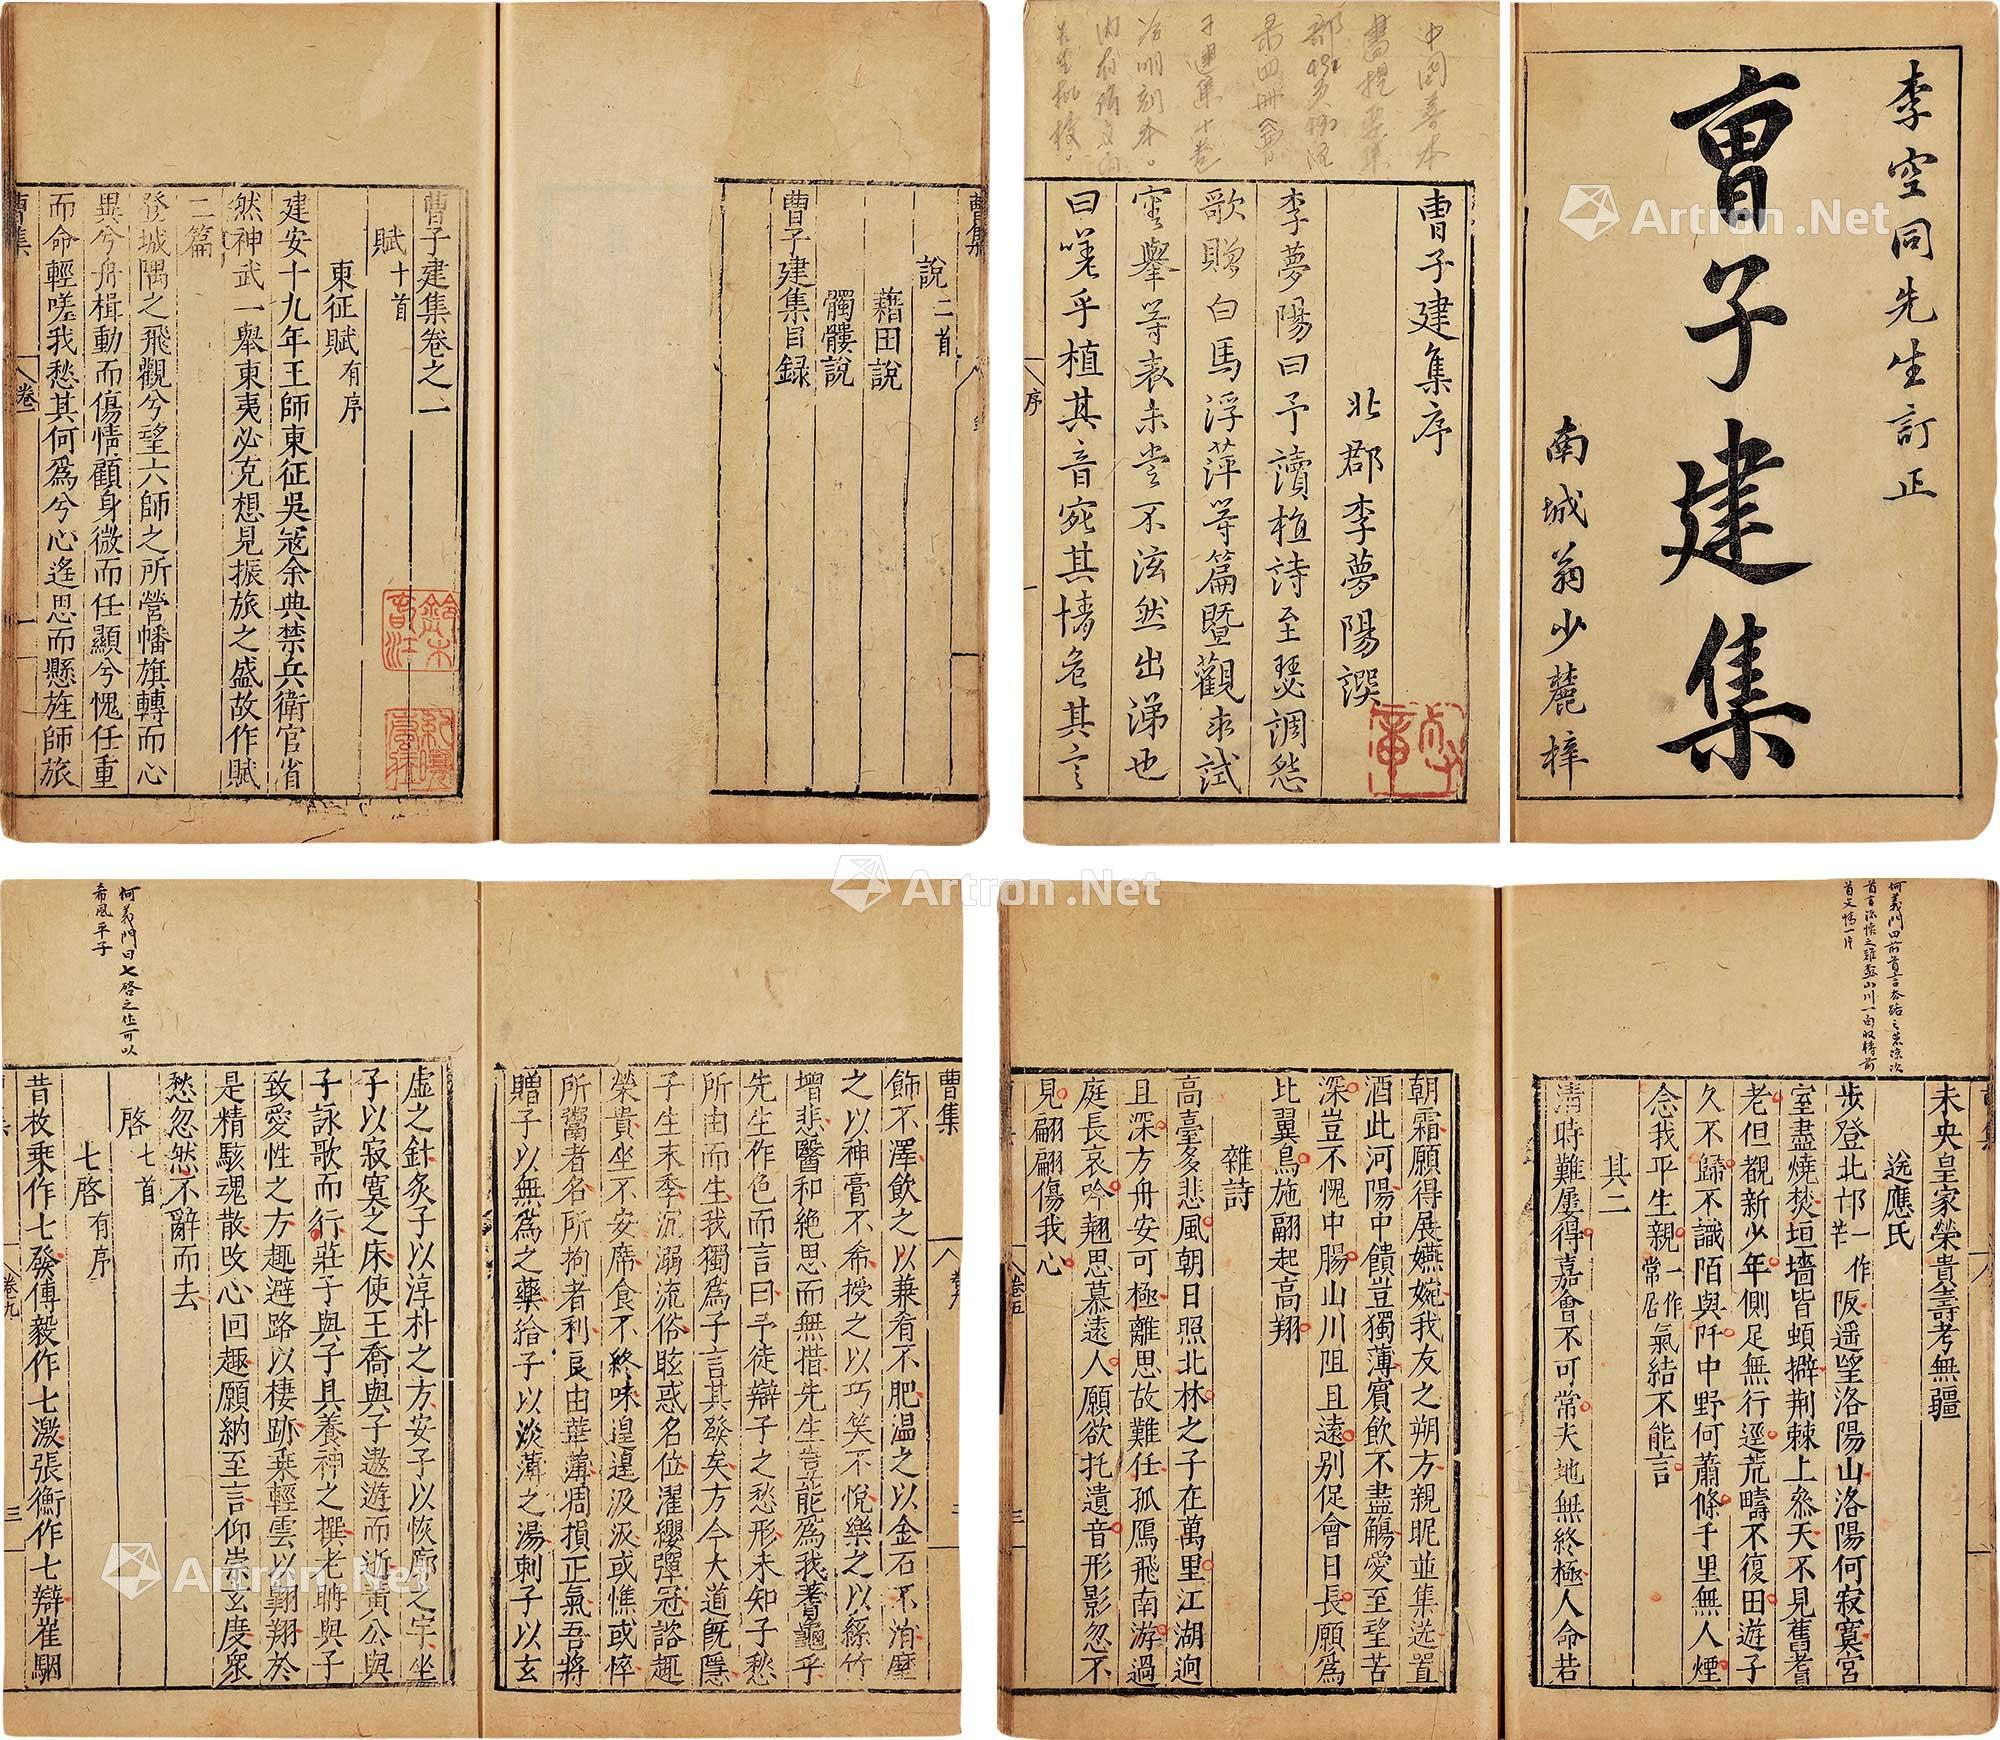 李空同先生訂正
曺子建集
南城翁少麓梓
曹子建集序
北郡李夢陽譔
李夢陽曰予讀植詩至瑟調怨
歌贈白馬浮萍等篇暨觀求試
審舉等表未嘗不泫然出涕也
曰嗟乎植其音宛其情危其言
序
曹集
說二首
藉田說
髑髏說
曹子建集目録
曹子建集卷之一
賦十首
東征賦有序
建安十九年王師東征吳寇余典禁兵衛官省
然神武一舉東夷必克想見振旅之盛故作賦
二篇
登城隅之飛觀兮望六師之所營幡旗轉而心
異兮舟楫動而傷情顧身微而任顯兮愧任重
而命輕嗟我愁其何爲兮心遙思而懸旌師旅
曹集
卷一
一
何義門曰前首言本路之荒凉次
首文情一片
未央皇家榮貴壽考無疆
送應氏
步登北邙一作芒阪遥望洛陽山洛陽何寂寞宮
室盡燒焚垣墻皆頓擗荆棘上叅天不見舊耆
老但覩新少年側足無行逕荒疇不復田遊子
久不歸不識陌與阡中野何蕭條千里無人煙
念我平生親一作常居氣結不能言
其二
清時難屢得嘉會不可常天地無終極人命若
朝霜願得展嬿婉我友之朔方親昵並集送置
酒此河陽中饋豈獨薄賓飲不盡觴愛至望苦
深豈不愧中腸山川阻且遠別促會日長願爲
比翼鳥施翮起高翔
雜詩
高臺多悲風朝日照北林之子在萬里江湖迥
且深方舟安可極離思故難任孤鴈飛南游過
庭長哀吟翹思慕遠人願欲托遺音形影忽不
見翩翩傷我心
卷五
三
曹集
飾不澤飲之以兼肴不肥温之以金石不消塵
之以神膏不希授之以巧笑不悅樂之以絲竹
增悲醫和絶思而無措先生豈能爲我蓍龜乎
先生作色而言曰予徒辯子之愁形未知子愁
所由而生我獨爲子言其發矣方今大道既隱
子生末季沉溺流俗眩惑名位濯纓彈冠諮趣
榮貴坐不安席食不終味遑遑汲汲或憔或悴
所鬻者名所拘者利良由華薄凋損正氣吾將
贈子以無爲之藥給子以淡薄之湯刺子以玄
虛之針炙子以淳朴之方安子以恢廓之宇坐
子以寂寞之床使王喬與子遨遊而逝黃公與
子詠歌而行莊子與子具養神之撰老聃與子
致愛性之方趣避路以棲跡乘輕雲以翺翔於
是精駭魂散改心回趣願納至言仰崇玄度衆
愁忽然不辭而去
啓七首
七啓有序
昔枚乗作七發傅毅作七激張衡作七辯崔駰
卷九
三
何義門曰七啓之作可以
希風平子
Artron.Net
Artron.Net
Artron.Net
Artron.Net
Artron.Net